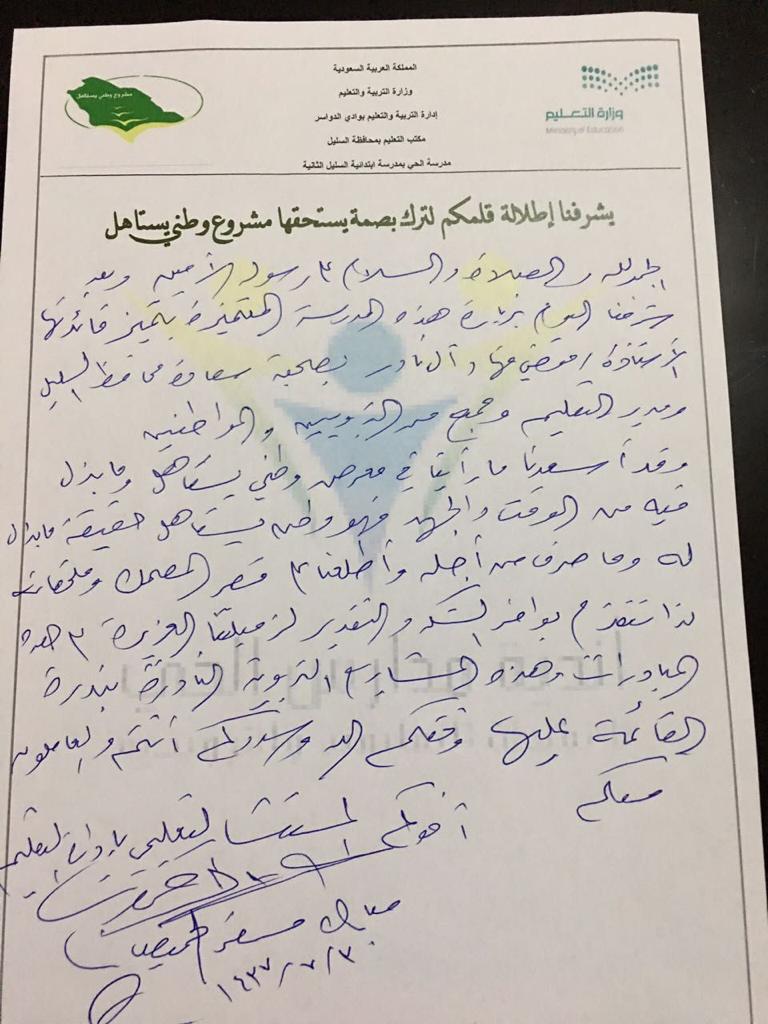 المملكة العربية السعودية
وزارة التربية والتعليم
إدارة التربية والتعليم بوادي الدواسر
مكتب التعليم بمحافظة السليل
مدرسة الحي بمدرسة ابتدائية السليل الثانية
مشروع وطني يستاهل
وزارة التعليم
Ministry of Education
يشرفنا إطلالة قلمكم لترك بصمة يستحقها مشروع وطني يستاهل
الحمد لله والصلاة والسلام على رسوله الأمين وبعد
شرفنا اليوم بزيارة هذه المدرسة المتميزة بتميز قائدتها
الأستاذة آل نادر بصحبة سعادة محافظ السليل
ومدير التعليم وجمع من التربويين والمواطنين
وقد أسعدنا ما رأينا في معرض وطني يستاهل وما بذل
فيه من الوقت والجهد فهو وطن يستاهل حقيقة ما بذل
له وما صرف من أجله وأطلعنا على قصر المصمك وملحقاته
لذا نتقدم بوافر الشكر والتقدير لزميلتنا العزيزة على هذه
المبادرات وهذه المشاريع التربوية النادرة بندرة
القائمة عليها وفقكم الله وسددكم أنتم والعاملون
معكم
أخوكم المستشار التعليمي بإدارة التعليم
مبارك مسفر
١٤٣٧/٧/٣
أندية مدارس الحي